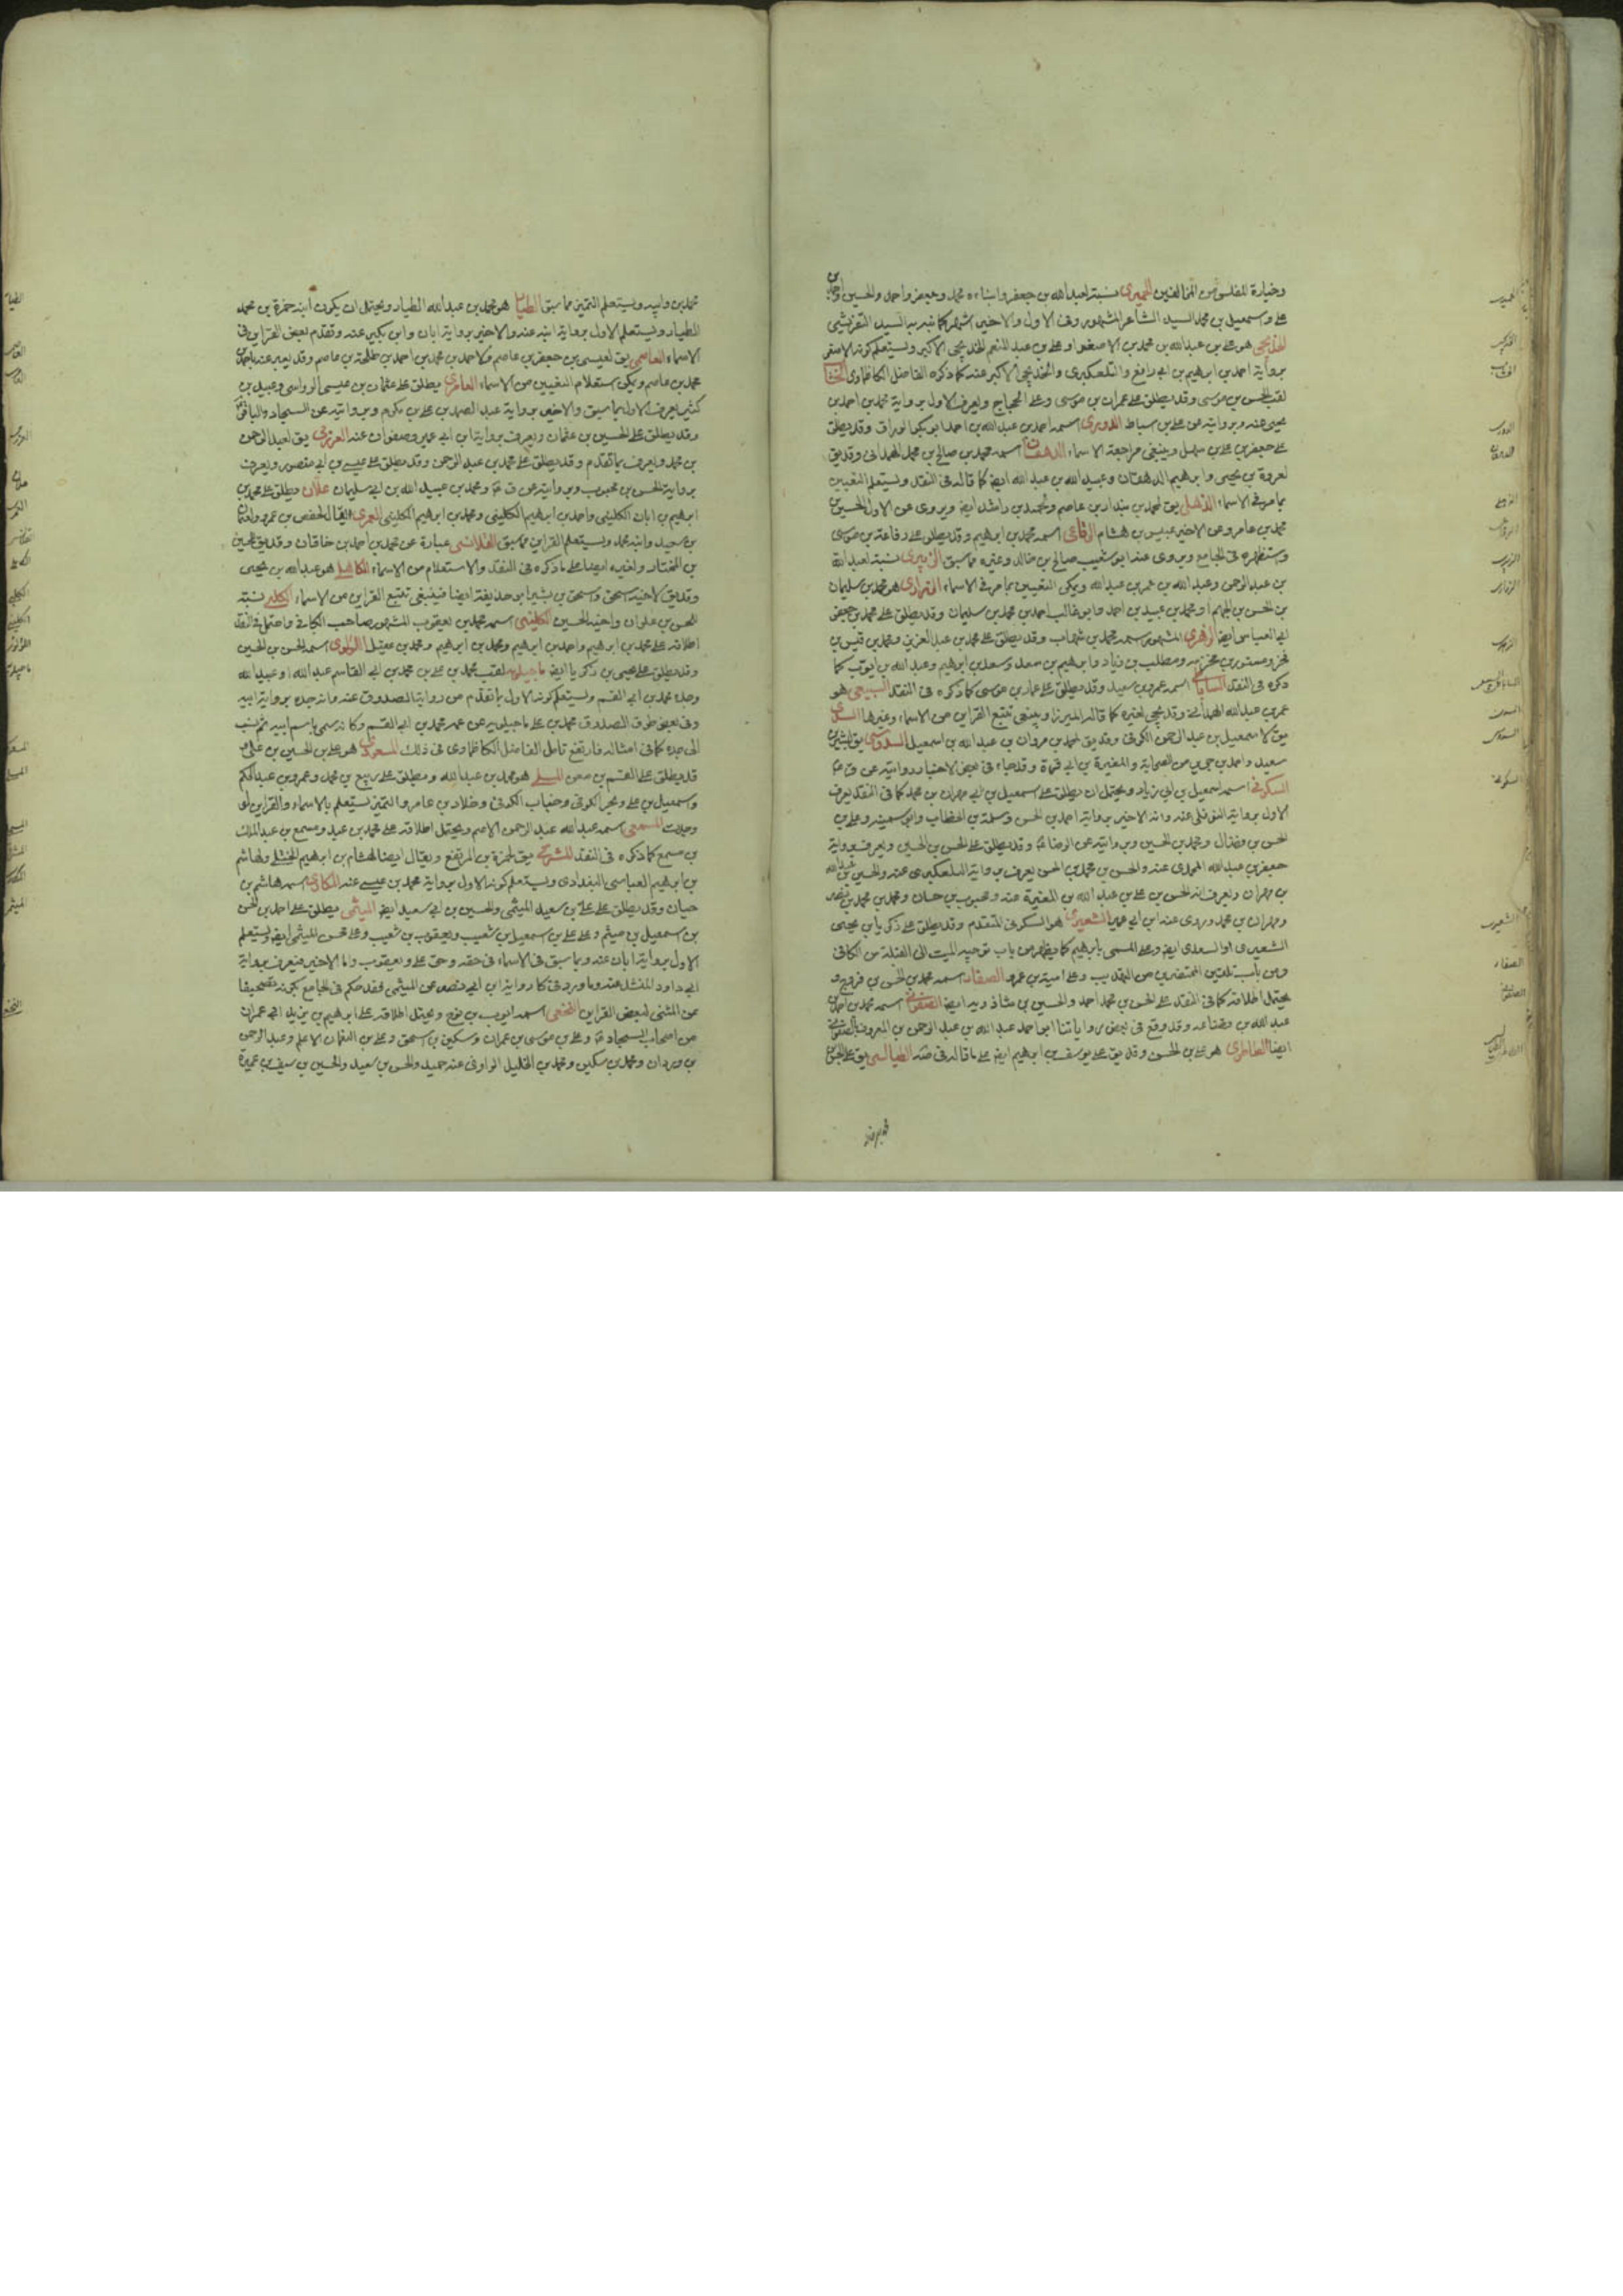 وخيارة المفلس من المخالفين الحميرى نسبة لعبد الله بن جعفر وابناءه محمد وجعفر واحمد والحسين
على واسمعيل بن محمد السيد الشاعر المشهور وفى الاول والاخير اشهر كما نبه به السيد التفرشى
الخديجى هو على بن عبد الله بن محمد بن الاصغر او على بن عبد المنعم الخديجى الاكبر ويستعلم كونه الاصغر
برواية احمد بن ابرهيم بن ابى رافع والتلعكبرى والخديجى الاكبر عنه كما ذكره الفاضل الكاظماوى الخشاب
لقب الحسن بن موسى وقد يطلق على عمران بن موسى وعلى الحجاج ويعرف الاول برواية محمد بن احمد بن
يحيى عنه وبروايته عن على بن اسباط الدورى اسمه احمد بن عبد الله بن احمد ابو بكر الوراق وقد يطلق
على جعفر بن على بن سهل وينبغى مراجعة الاسماء الدهقان اسمه محمد بن صالح بن محمد الهمدانى وقد يق
لعروة بن يحيى وابرهيم الدهقان وعبيد الله بن عبد الله ايض كما قاله فى النقد ويستعلم التعيين
بما مر فى الاسماء الذهلى يق لمحمد بن بندار بن عاصم ومحمد بن راشد ايض ويروى عن الاول الحسين بن
محمد بن عامر وعن الاخير عبيس بن هشام الرفاعى اسمه محمد بن ابرهيم وقد يطلق على رفاعة بن موسى
واستظهره فى الجامع ويروى عنه ابو شعيب صالح بن خالد وغيره مما سبق الزبيرى نسبة لعبد الله
بن عبد الرحمن وعبد الله بن عمر بن عبد الله ويمكن التعيين بما مر فى الاسماء الزرارى هو محمد بن سليمان
بن الحسن بن الجهم او محمد بن عبيد بن احمد وابو غالب احمد بن محمد بن سليمان وقد يطلق على محمد بن جعفر
ابى العباس ايضا الزهرى المشهور اسمه محمد بن شهاب وقد يطلق على محمد بن عبد العزيز ومحمد بن قيس بن
مخرمة ومسور بن مخرمة ومطلب بن زياد وابرهيم بن سعد وسعد بن ابرهيم وعبد الله بن ايوب كما
ذكره فى النقد الساباطى اسمه عمرو بن سعيد وقد يطلق على عمار بن موسى كما ذكره فى النقد السبيعى هو
عمر بن عبد الله الهمدانى وقد يجى لغيره كما قاله الميرزا وينبغى تتبع القراين من الاسماء وغيرها السدى
يق لاسمعيل بن عبد الرحمن الكوفى وقد يق لمحمد بن مروان بن عبد الله بن اسمعيل السدوسى يق لبشير بن
سعيد واحمد بن من الصحابة والمغيرة بن ابى قرة وقد جاء فى بعض الاخبار روايته عن ق ع
السكونى اسمه اسمعيل بن ابى زياد ويحتمل ان يطلق على اسمعيل بن ابى مهران بن محمد كما فى النقد يعرف
الاول برواية النوفلى عنه وانه الاخير برواية احمد بن الحسن وسلمة بن الخطاب وابى سمينة وعلى بن
الحسن بن فضال ومحمد بن الحسين وبروايته عن الرضا وقد يطلق على الحسن بن الحسين ويعرف برواية
جعفر بن عبد الله المحمدى عنه والحسن بن محمد بن الحسن يعرف برواية التلعكبرى عنه والحسين بن عبد الله
بن مهران ويعرف انه الحسن بن على بن عبد الله بن المغيرة عنه ومحبوب بن حسان ومحمد بن محمد بن نصر
ومهران بن محمد وروى عنه ابن ابى عمير الشعيرى هو السكونى المتقدم وقد يطلق على ذكريا بن يحيى
الشعيرى او السعدى ايض وعلى المسمى بابرهيم كما يظهر من باب توجيه الميت الى القبلة من الكافى
ومن باب تلقين المحتضرين من التهذيب وعلى امية بن عمرو الصفار اسمه محمد بن الحسن بن فروخ و
يحتمل اطلاقه كما فى النقد على الحسن بن محمد احمد والحسين بن شاذويه ايضا الصفوانى اسمه محمد بن احمد بن
عبد الله بن قضاعه وقد وقع فى بعض رواياتنا ابو احمد عبد الله بن عبد الرحمن بن المعروف بالصفوانى
ايضا الطاطرى هو على بن الحسن وقد يق على يوسف بن ابرهيم ايض على ما قاله فى صه الطيالسى يق على الحسن
محمد بن وابيه ويستعلم التميز مما سبق الطيار هو محمد بن عبد الله الطيار ويحتمل ان يكون ابنه حمزة بن محمد
الطيار ويستعلم الاول برواية ابنه عنه والاخير برواية ابان وابن بكير عنه وتقدم بعض القراين فى
الاسماء العاصمى يق لعيسى بن جعفر بن عاصم ولاحمد بن محمد بن احمد بن طلحة بن عاصم وقد يعبر عنه باحمد بن
محمد بن عاصم ويمكن استعلام التعيين من الاسماء العامرى يطلق على عثمان بن عيسى الرواسى وعبيد بن
كثير يعرف الاول بما سبق والاخير برواية عبد الصمد بن على بن مكرم وبروايته عن السجاد والباقر
وقد يطلق على الحسين بن عثمان ويعرف برواية ابن ابى عمير وصفوان عنه العرزمى يق لعبد الرحمن
بن محمد ويعرف بما تقدم وقد يطلق على محمد بن عبد الرحمن وقد يطلق على عيسى بن ابى منصور ويعرف
برواية الحسن بن محبوب وبروايته عن ق ع ومحمد بن عبيد الله بن ابى سليمان علان يطلق على محمد بن
ابرهيم بن ابان الكلينى واحمد بن ابرهيم الكلينى ومحمد بن ابرهيم الكلينى العمرى يقال لحفص بن عمرو ولعثمان
بن سعيد وابنه محمد ويستعلم القراين مما سبق القلانسى عبارة عن محمد بن احمد بن خاقان وقد يق للحسين
بن المختار ولغيره ايضا على ما ذكره فى النقد والاستعلام من الاسماء الكاهلى هو عبد الله بن يحيى
وقد يق لاخيه اسحق واسحق بن بشير ابو حذيفة ايضا فينبغى تتبع القراين من الاسماء الكلبى نسبة
للحسن بن علوان واخيه الحسين الكلينى اسمه محمد بن يعقوب المشهور صاحب الكافى واحتمل فى النقد
اطلاقه على محمد بن ابرهيم واحمد بن ابرهيم ومحمد بن ابرهيم ومحمد بن عقيل اللؤلوى اسمه الحسن بن الحسين
وقد يطلق على يحيى بن ذكريا ايض ماجيلويه لقب محمد بن على بن محمد بن ابى القاسم عبد الله او عبيد الله
وجده محمد بن ابى القسم ويستعلم كونه الاول بما تقدم من رواية الصدوق عنه وانه جده برواية ابيه
وفى بعض طرق الصدوق محمد بن على ماجيلويه عن عمه محمد بن ابى القسم وكانه سمى باسم ابيه ثم نسب
الى جده كما فى امثاله فارتفع تامل الفاضل الكاظماوى فى ذلك المسعودى هو على بن الحسين بن على
قد يطلق على القسم بن معن المسلى هو محمد بن عبد الله ويطلق على ربيع بن محمد وعمرو بن عبد الحكم
واسمعيل بن على وبحر الكوفى وخباب الكوفى وخلاد بن عامر والتميز يستعلم بالاسماء والقراين لو
وجدت المسمعى اسمه عبد الله عبد الرحمن الاصم ويحتمل اطلاقه على محمد بن عبد ومسمع بن عبد الملك
بن مسمع كما ذكره فى النقد المشرقى يق لحمزة بن المرتفع ويقال ايضا لهشام بن ابرهيم الختلى ولهاشم
بن ابرهيم العباسى البغدادى ويستعلم كونه الاول برواية محمد بن عيسى عنه المكارى اسمه هاشم بن
حيان وقد يطلق على على بن سعيد الميثمى والحسين بن ابى سعيد ايض الميثمى يطلق على احمد بن الحسن
بن اسمعيل بن ميثم وعلى على بن اسمعيل بن شعيب ويعقوب بن شعيب وعلى محسن الميثمى ايض ويستعلم
الاول برواية ابان عنه وبما سبق فى الاسماء فى حقه وحق على ويعقوب واما الاخير فيعرف برواية
ابى داود المنشد عنه وما ورد فى كا رواية ابن ابى نصر عن الميثمى فقد حكم فى الجامع بكونه تصحيفا
عن المثنى لبعض القراين النخعى اسمه ايوب بن نوح ويحتمل اطلاقه على ابرهيم بن يزيد ابى عمران
من اصحاب السجاد ع وعلى بن موسى بن عمران وسكين بن اسحق وعلى بن النعمان الاعلم وعبد الرحمن
بن وردان ومحمد بن سكين ومحمد بن الخليل الراوى عنه حميد والحسن بن سعيد والحسين بن سيف بن عميرة